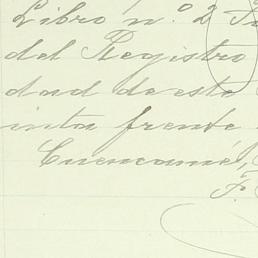 Libro n.º 2
del Registro
dad de este
inta frente
Cuencamé,
F.